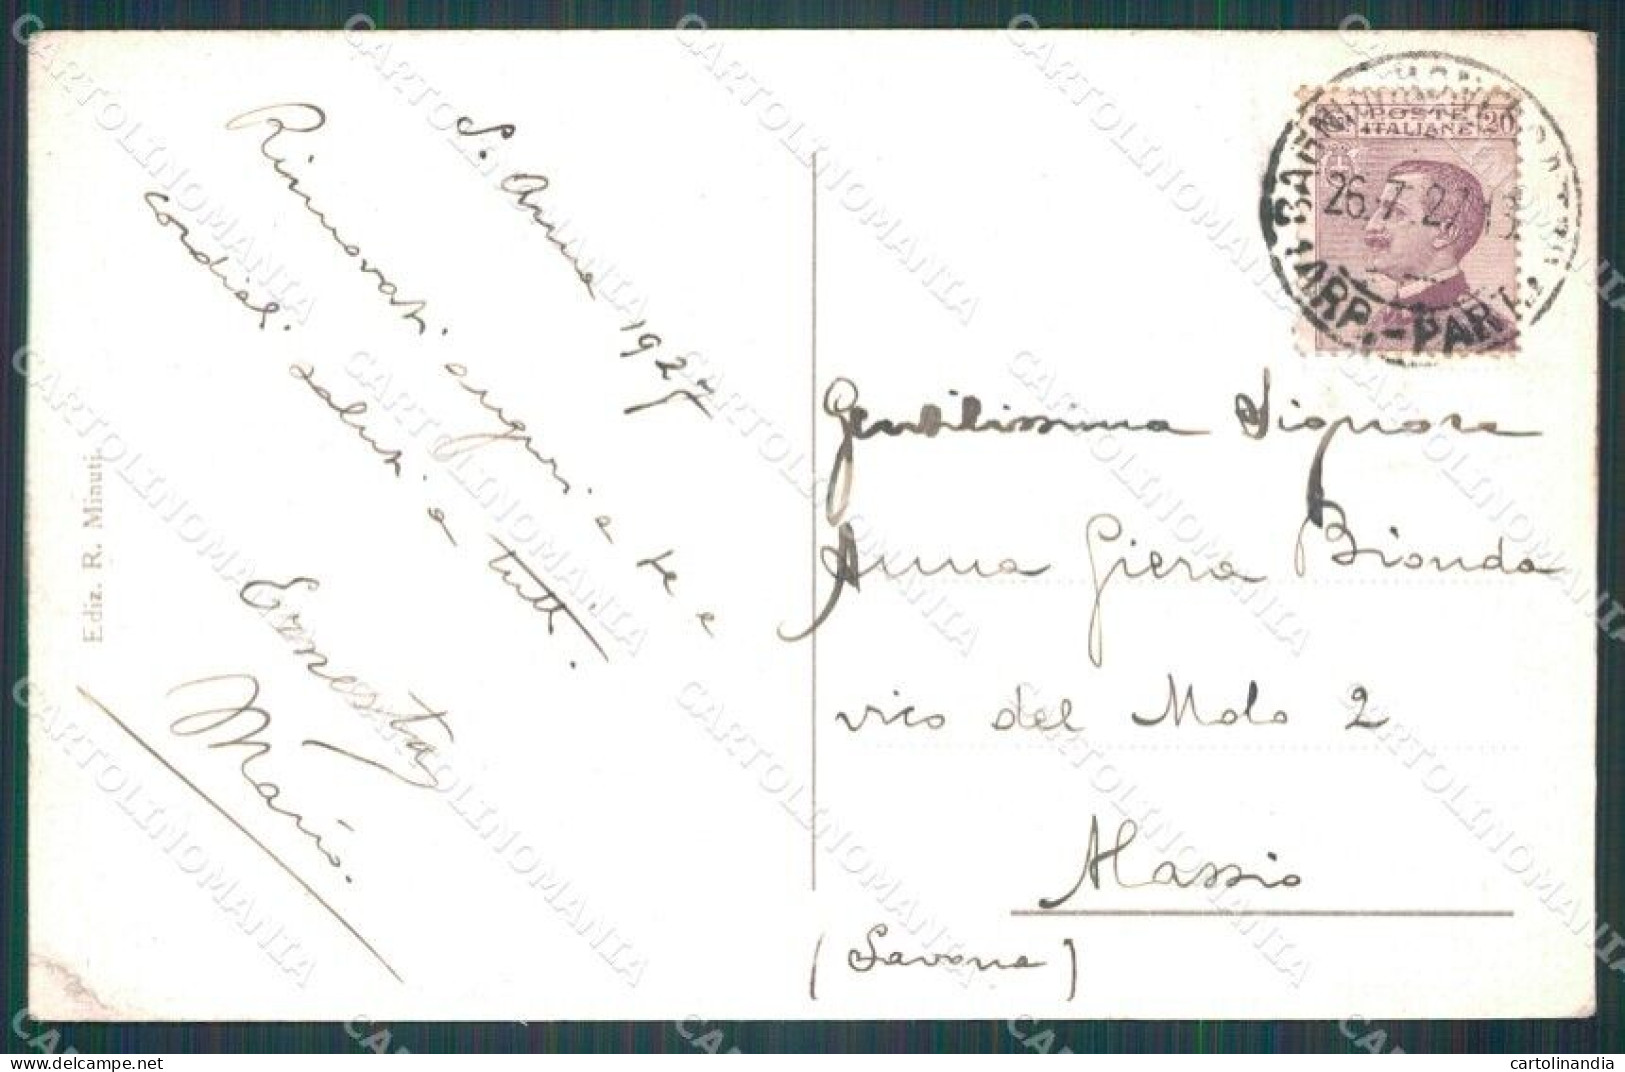 S. Anna 1927
Rinnovati auguri a te e
cordiali saluti a tutti.
Ernesta
Mario.
Ediz. R. Minuti.
POSTE
ITALIANE
20
26.7.27
ARR.-PART.
Gentilissima Signora
Anna Giera Bionda
vico del Molo 2
Alassio
(Savona)
CARTOLINOMANIA
delcampe.net
cartolinandia